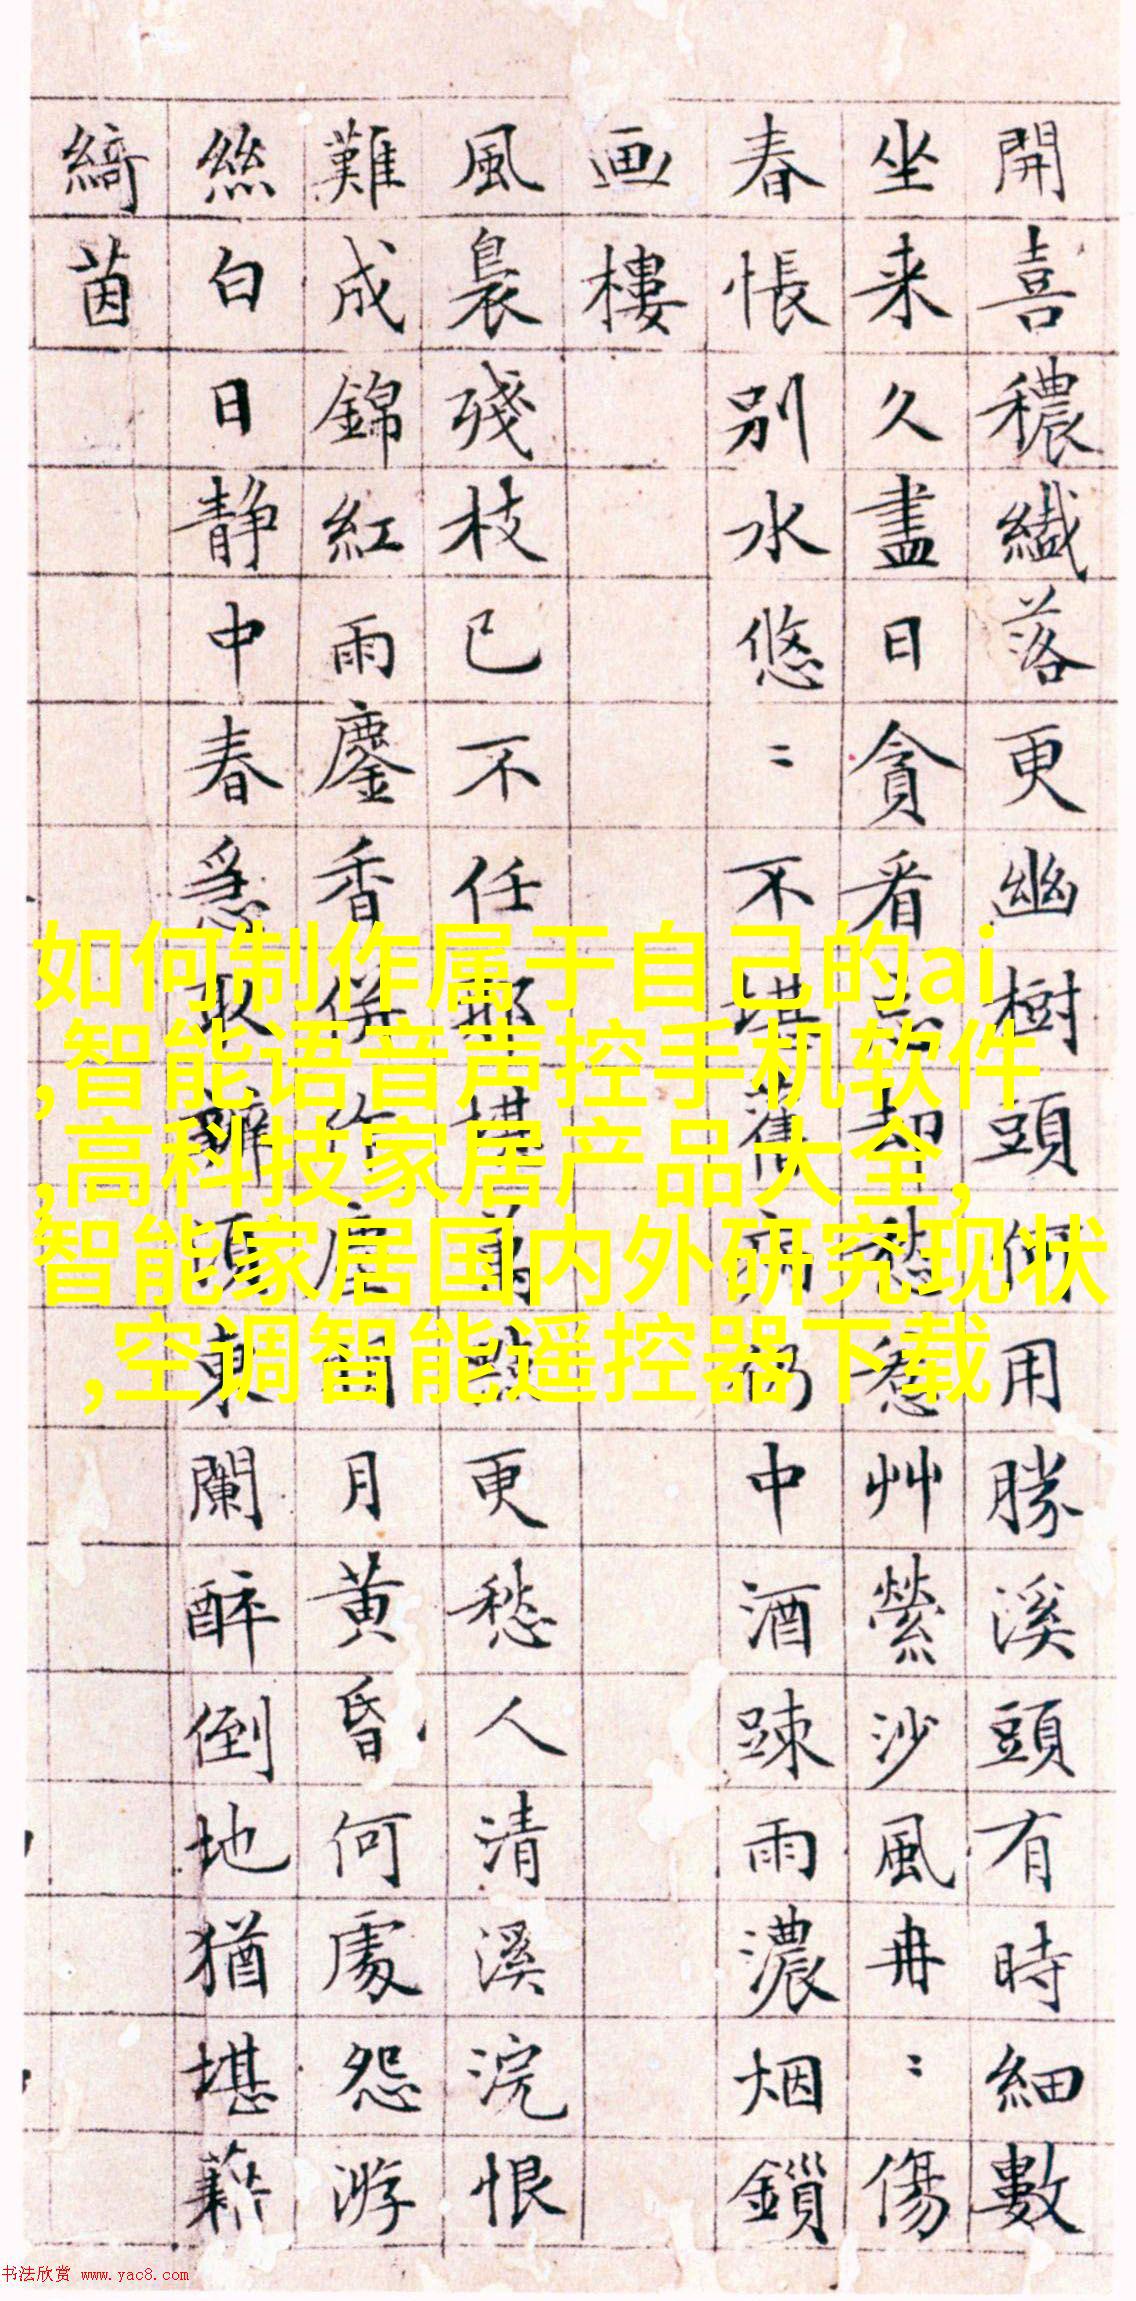 開喜穠纖落更幽樹頭何用勝溪頭有時細數
坐来久盡日貪看却愁惹艸縈沙風冉〻傷
春悵別水悠〻不堪舊病仍中酒踈雨濃烟鎖
画樓
風裊殘枝已不任那堪萬點更愁人清溪浣恨
難成錦紅雨鏖香併作塵月黄昏何處怨游
絲白日静中春急取頭東闌醉倒地猶堪藉
綺茵
如何制作属于自己的ai
,智能语音声控手机软件
,高科技家居产品大全,
智能家居国内外研究现状
,空调智能遥控器下载
书法欣赏 www.yac8.com